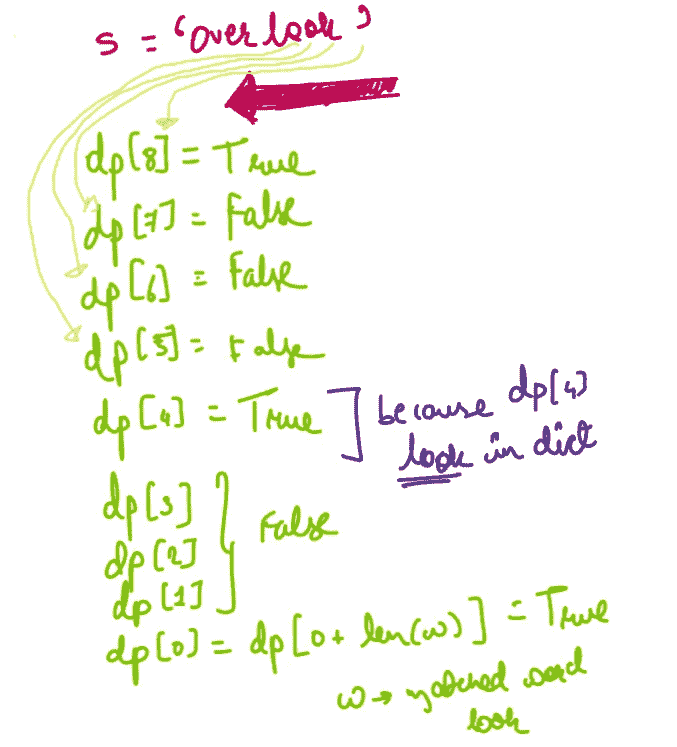 s = 'over look'
dp[8] = True
dp[7] = False
dp[6] = False
dp[5] = False
dp[4] = True ] because dp[4]
look in dict
dp[3]
dp[2] } False
dp[1]
dp[0] = dp[0 + len(w)] = True
w → matched word
look